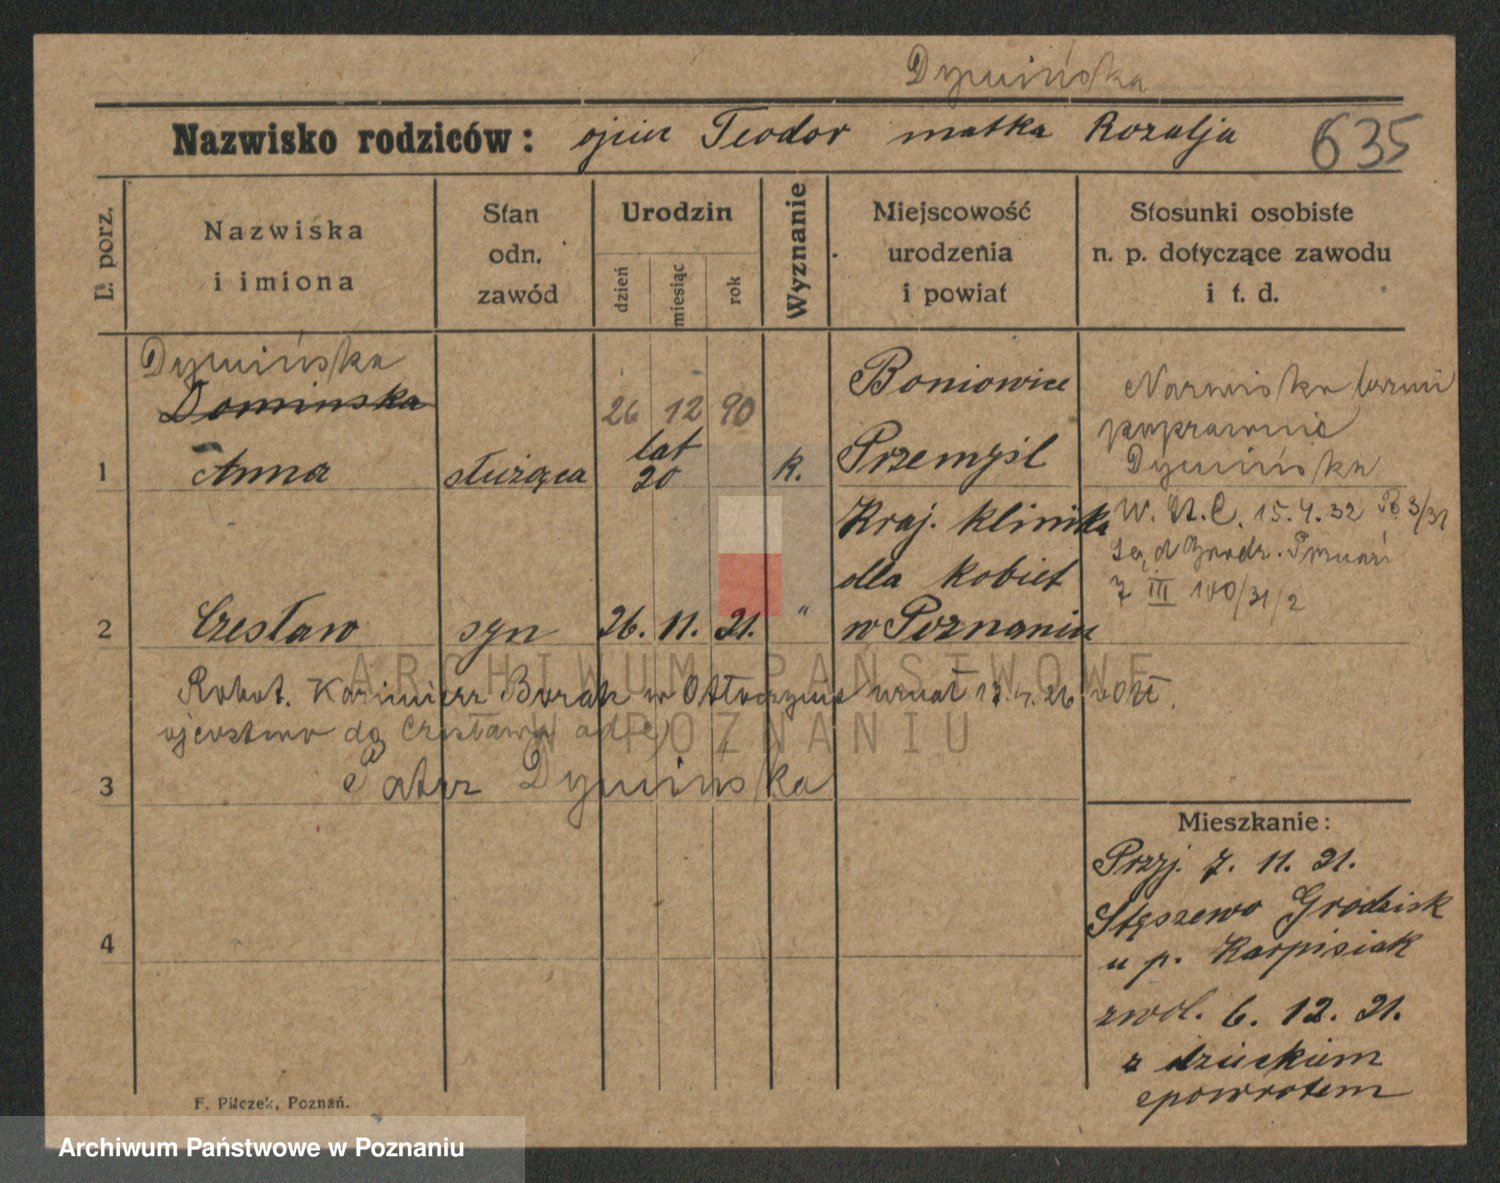 Dymińska
Nazwisko rodziców: ojciec Teodor matka Rozalja 635
L. porz.
Nazwiska
i imiona
Stan
odn.
zawód
Urodzin
dzień
miesiąc
rok
Wyznanie
Miejscowość
urodzenia
i powiat
Stosunki osobiste
n. p. dotyczące zawodu
i t. d.
1
Dymińska
Dominska
Anna
służąca
26 12 90
lat
20
k.
Boniowice
Przemyśl
Nazwisko brzmi
poprawnie
Dymińska
2
Czesław
syn
26. 11. 21.
"
Kraj. klinika
dla kobiet
w Poznaniu
W. U. C. 15.4.32 3/31
Poznań
7 III 100/31/2
Robot. Kazimierz Burak w uznał 17.4.26
ojcostwo do Czesława
3
Patrz Dymińska
4
Mieszkanie:
Przyj. 7. 11. 21.
Stęszewo Grodzisk
u p. Karpisiak
zwol. 6. 12. 21.
z dzieckiem
spowrotem
F. Pilczek, Poznań.
ARCHIWUM PAŃSTWOWE
W POZNANIU
Archiwum Państwowe w Poznaniu